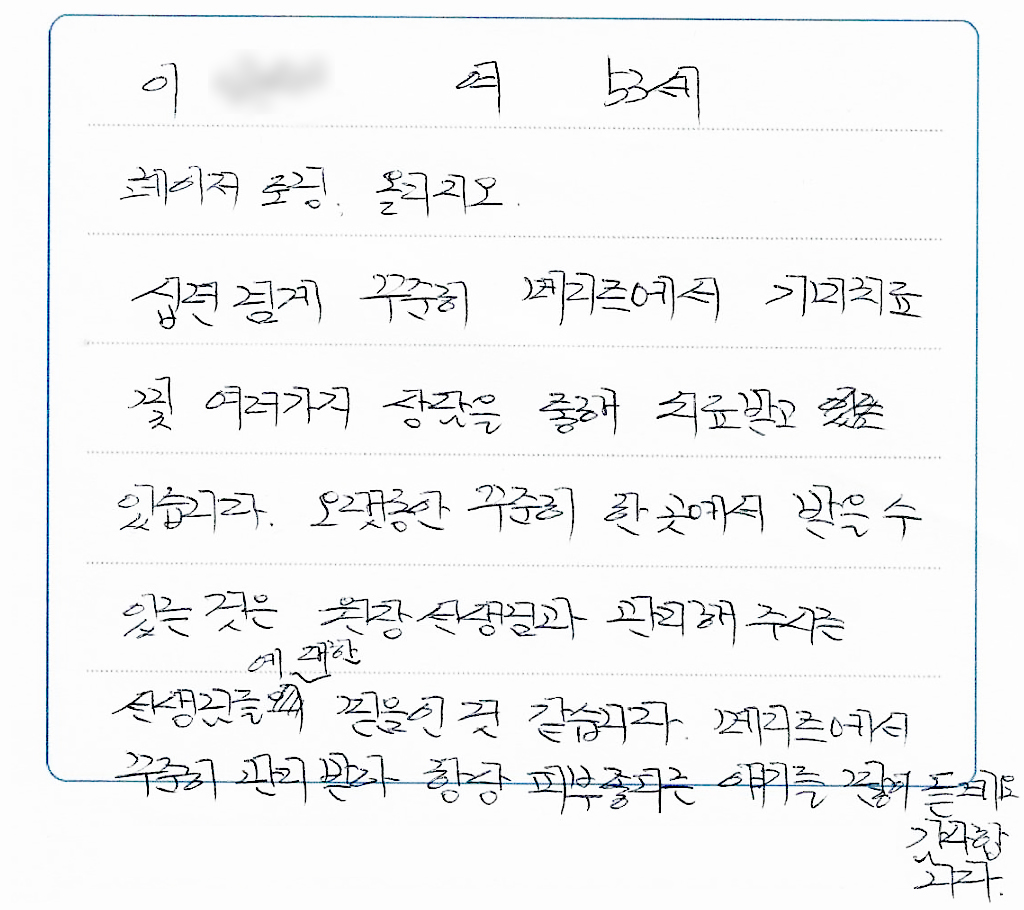 이 여 53세
레이저 토닝. 올리지오.
십년 넘게 꾸준히 메리즈에서 기미치료
및 여러가지 상담을 통해 치료받고
있습니다. 오랫동안 꾸준히 한 곳에서 받을 수
있는 것은 원장 선생님과 관리해 주시는
선생님들에 대한 믿음인 것 같습니다. 메리즈에서
꾸준히 관리 받다 항상 피부좋다는 얘기를 많이 듣네요
감사합
니다.